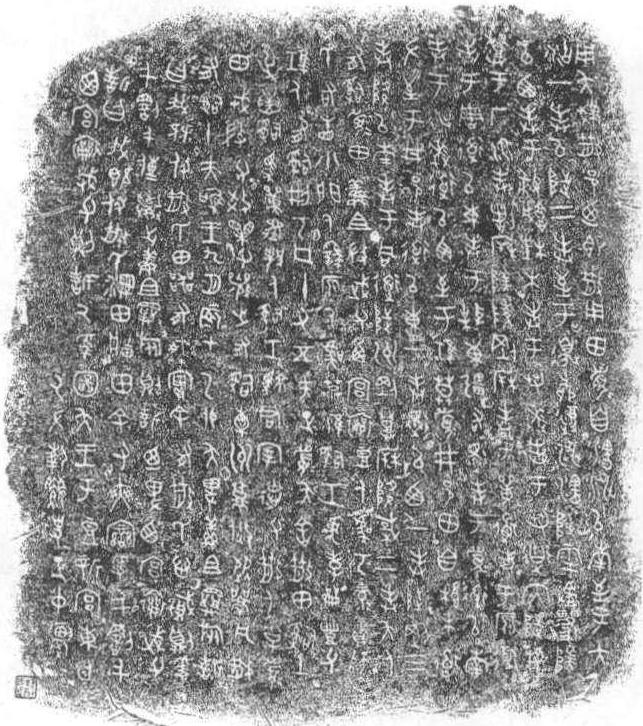 用夨散邑乃即散用田眉自瀗涉以南至于大
沽一封以陟二封至于邊柳復涉瀗陟雩
以西封于城木封于芻逨封于芻道内陟芻
登于厂湶封陵剛封于單道封于原道
封于周道以東封于東疆右還封于眉道以南
封于逨道以西至于莫眉井邑田自木道
左至于井邑封道以東一封還以西一封陟剛三
封降以南封于同道陟州剛登降棫二封夨人
有司眉田鮮且微武父西宮襄豆人虞丂彔貞師
氏右眚小門人繇原人虞艿淮司工虎孝龠豐父
人有司刑丂凡十又五夫正眉夨舍散田司土
屰司馬單人司工君宰德父散人小子眉
田戎微父效父襄之有司橐州從凡散
有司十夫唯王九月辰在乙卯夨卑鮮且旅誓
曰我既付散氏田器有爽實余有散氏心賊則爰
千罰千傳棄之鮮且旅則誓乃卑西宮襄武父
誓曰我既付散氏濕田田余有爽變爰千罰千
西宮襄武父則誓厥受圖夨王于豆新宮東廷
厥左執史正中農